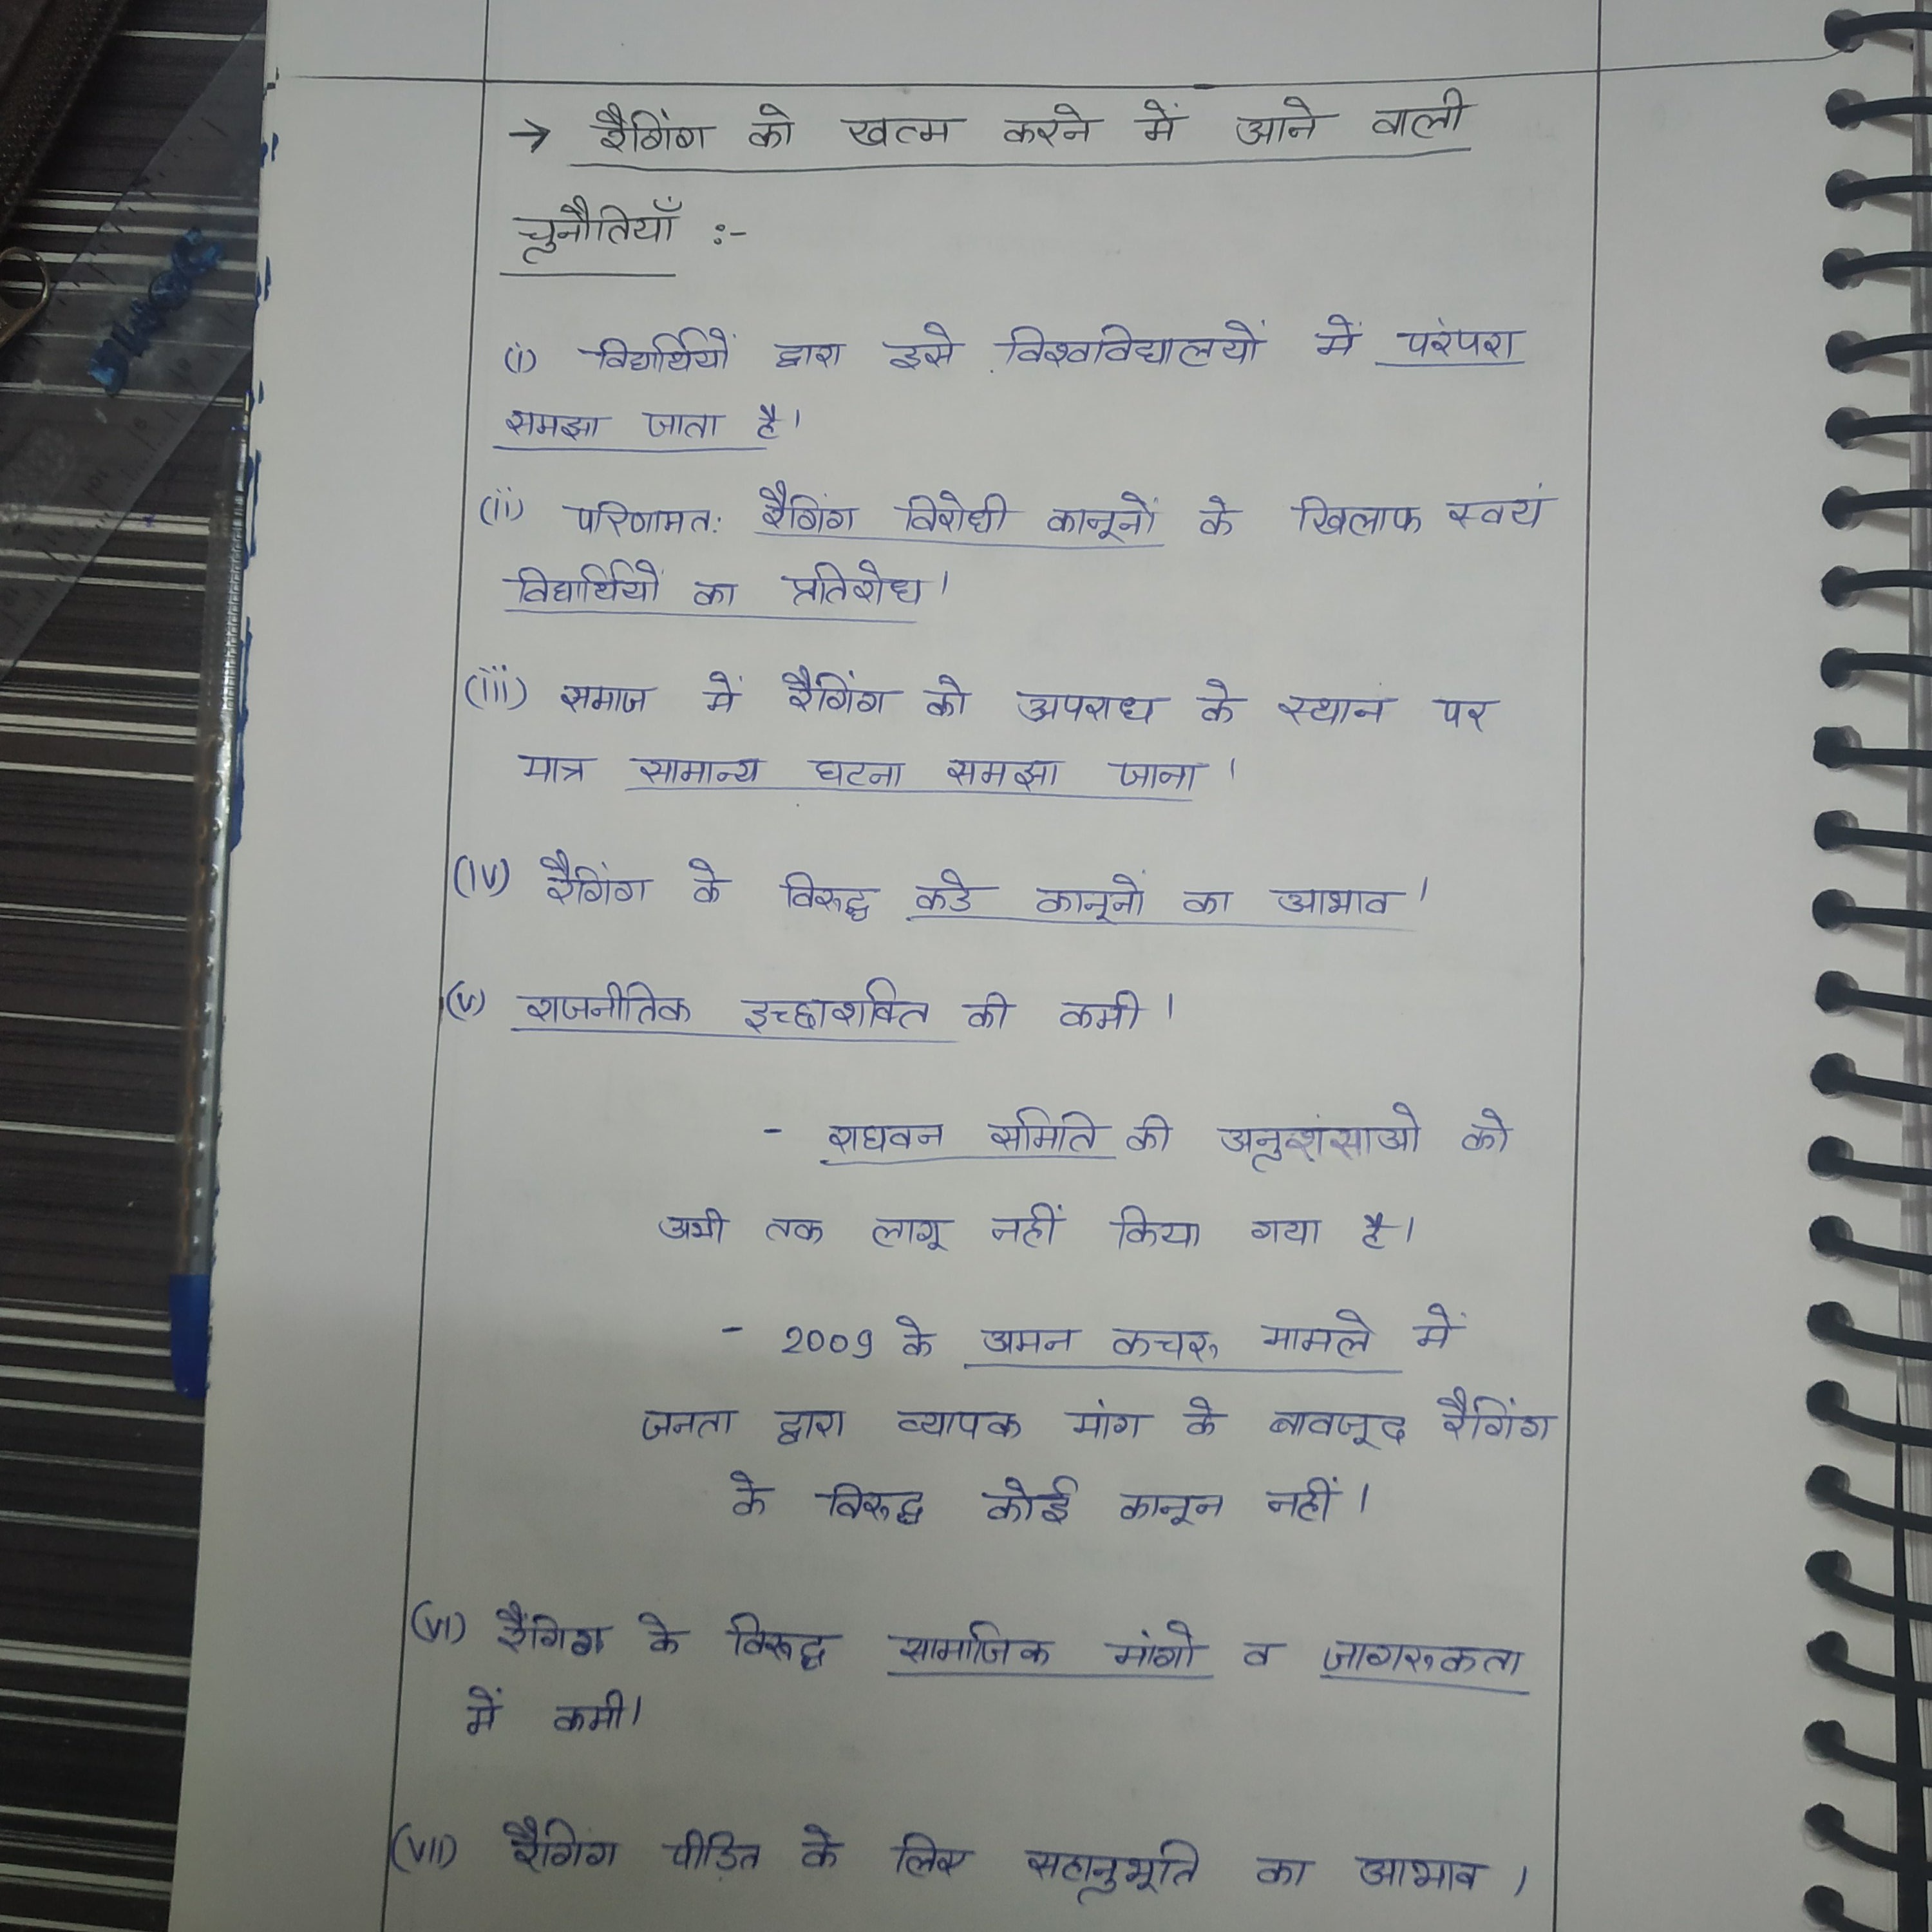 → रैगिंग को खत्म करने में आने वाली
चुनौतियाँ :-
(i) विद्यार्थियों द्वारा इसे विश्वविद्यालयों में परंपरा
समझा जाता है।
(ii) परिणामतः रैगिंग विरोधी कानूनों के खिलाफ स्वयं
विद्यार्थियों का प्रतिरोध।
(iii) समाज में रैगिंग को अपराध के स्थान पर
मात्र सामान्य घटना समझा जाना।
(iv) रैगिंग के विरुद्ध कडे कानूनों का आभाव।
(v) राजनीतिक इच्छाशक्ति की कमी।
- राघवन समिति की अनुशंसाओ को
अभी तक लागू नहीं किया गया है।
- 2009 के अमन कचरू मामले में
जनता द्वारा व्यापक मांग के बावजूद रैगिंग
के विरुद्ध कोई कानून नहीं।
(vi) रैंगिग के विरूद्ध सामाजिक मांगो व जागरूकता
में कमी।
(vii) रैगिंग पीड़ित के लिए सहानुभूति का आभाव।